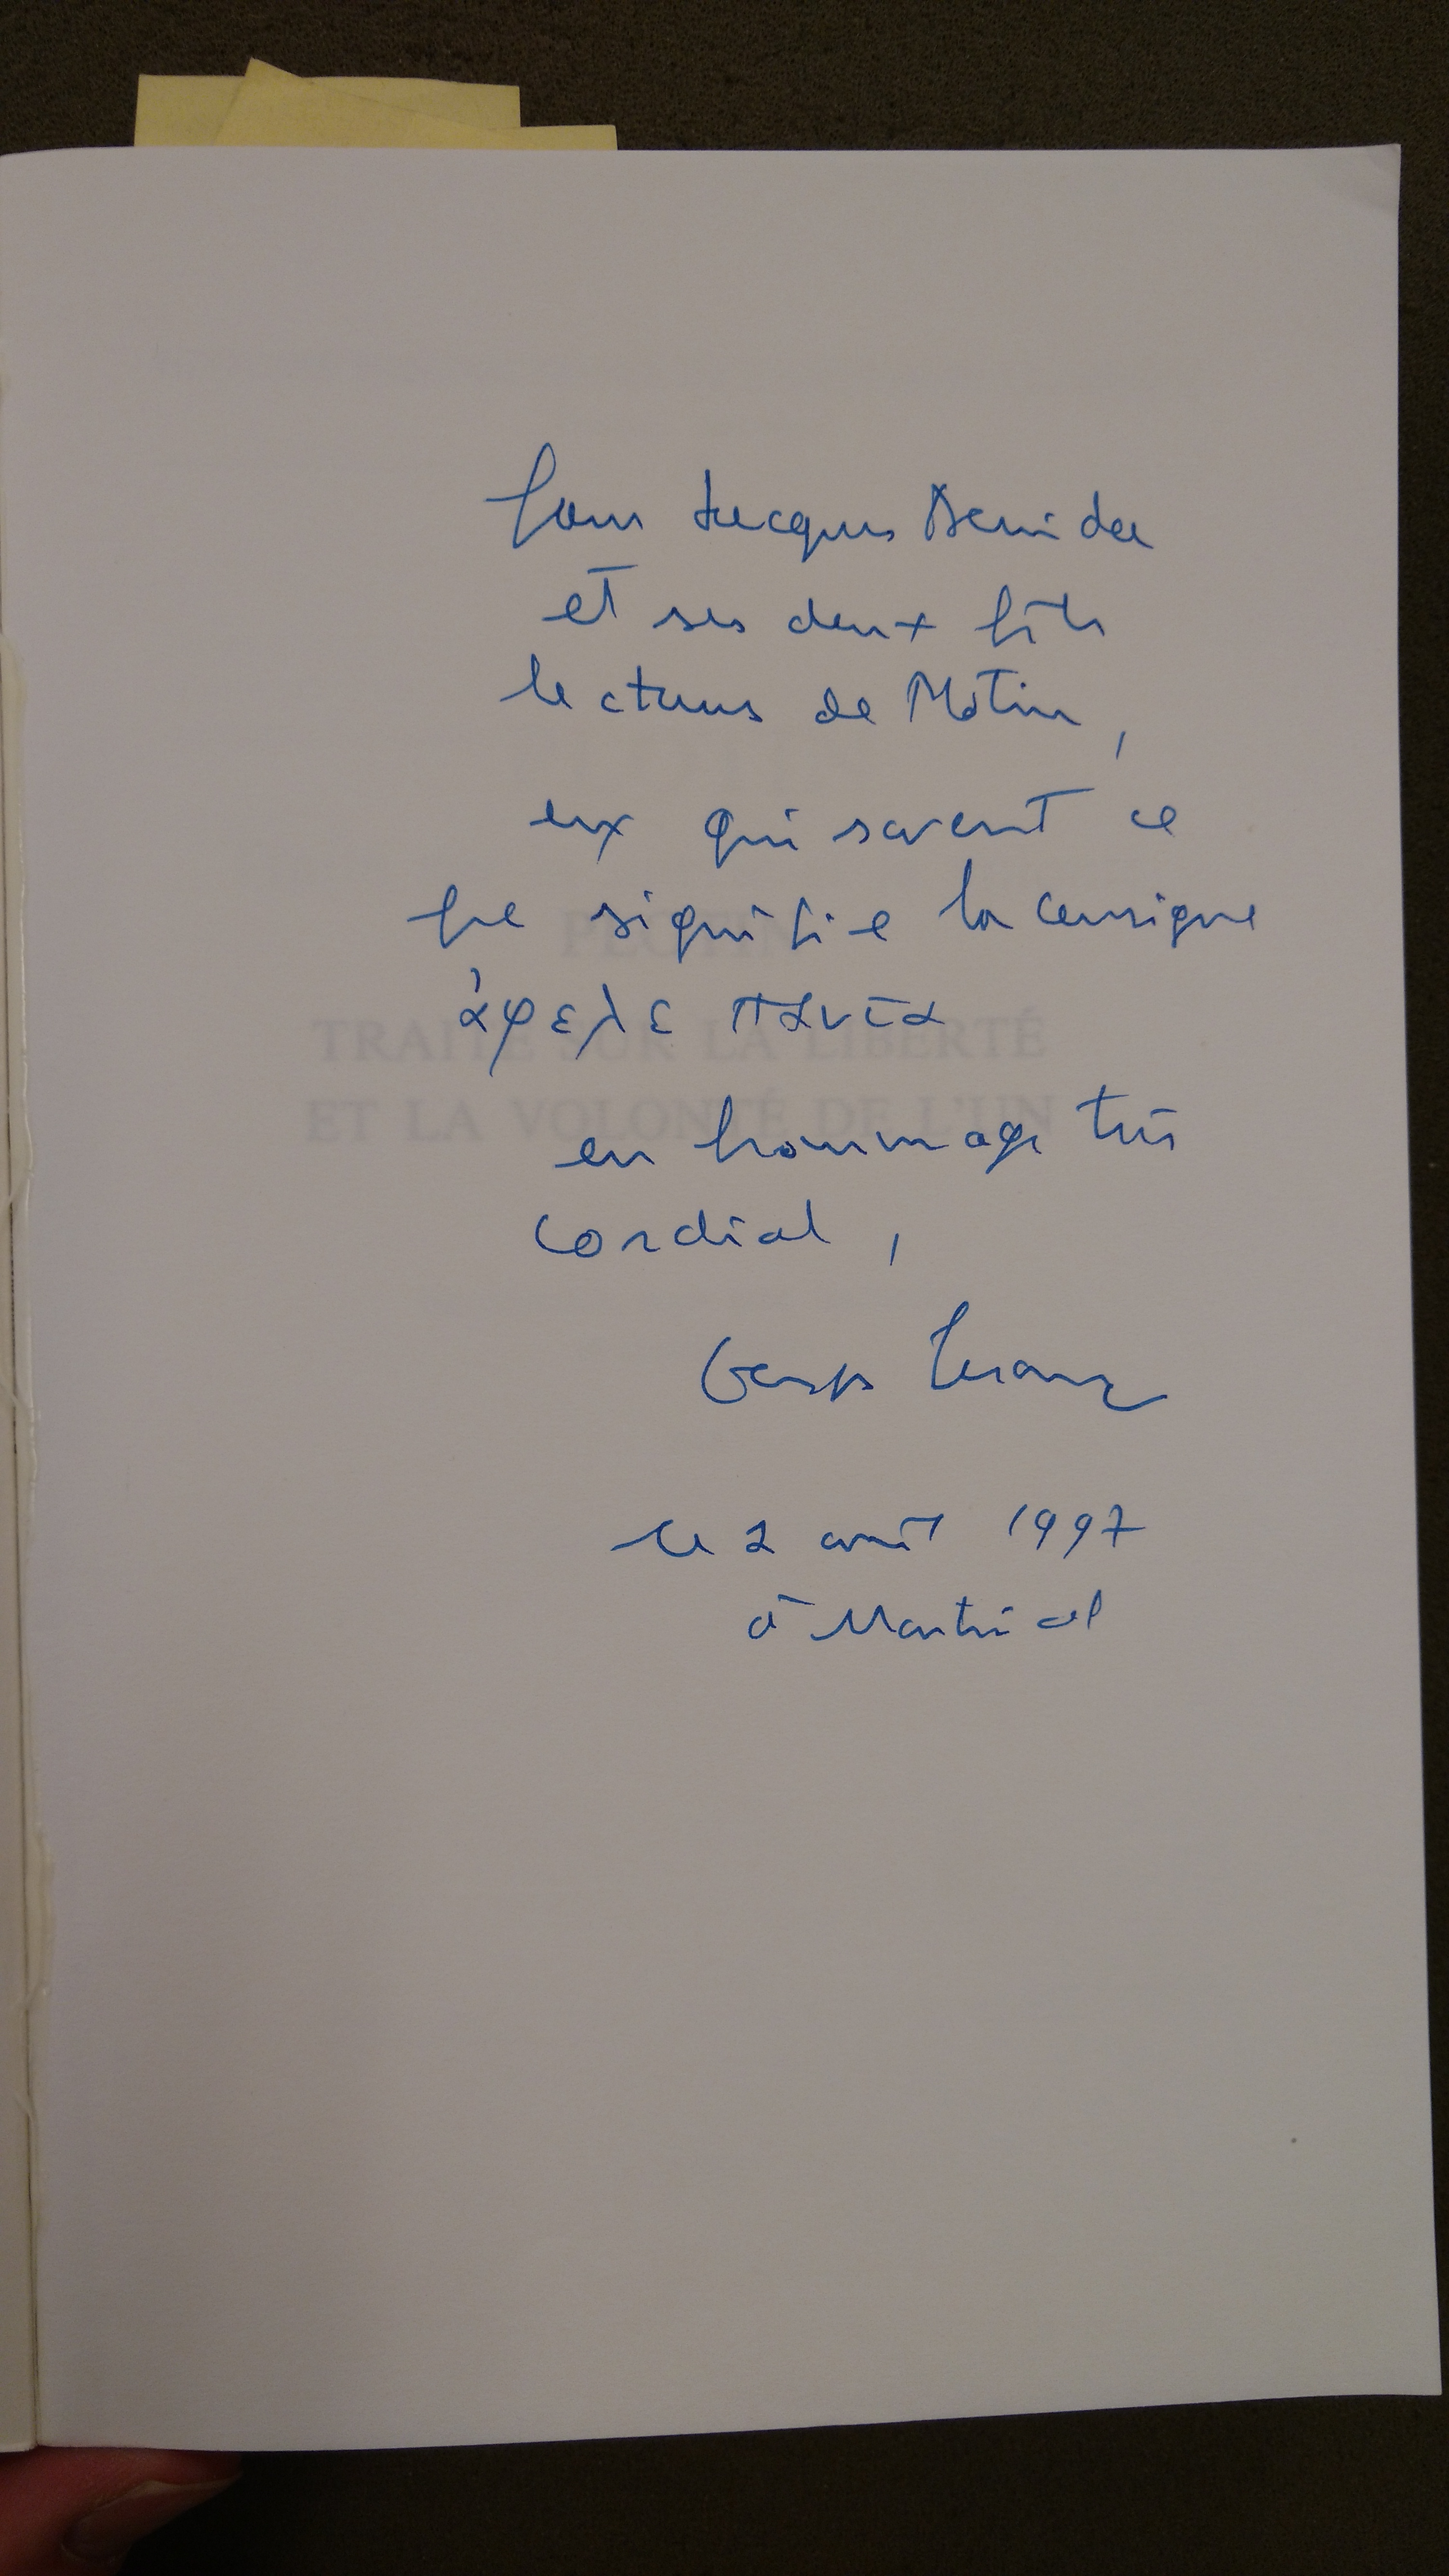 Pour Jacques Derrida
et ses deux fils
lecteurs de Plotin,
eux qui savent ce
que signifie la consigne
ἄφελε πάντα
en hommage très
cordial,
Georges Leroux
le 2 août 1997
à Montréal
PLOTIN
TRAITÉ SUR LA LIBERTÉ
ET LA VOLONTÉ DE L'UN